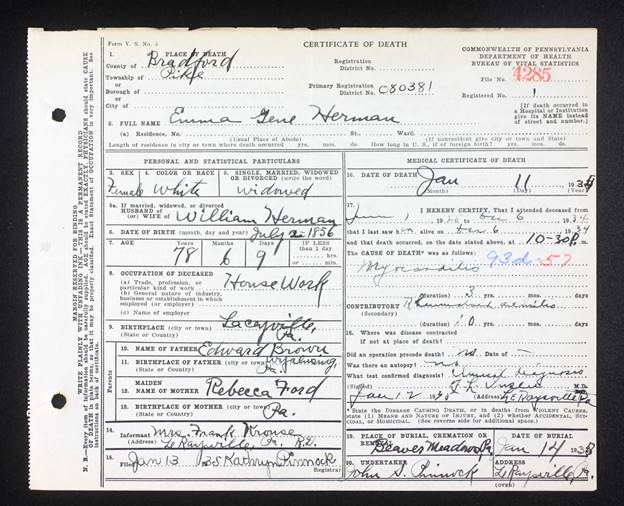 Form V. S. No. 5
CERTIFICATE OF DEATH
COMMONWEALTH OF PENNSYLVANIA
DEPARTMENT OF HEALTH
BUREAU OF VITAL STATISTICS
1. PLACE OF DEATH
County of Bradford
Township of Pike
or
Borough of
or
City of
Registration District No.
Primary Registration District No. 080381
File No. 4285
Registered No. 1
(If death occurred in a Hospital or Institution give its NAME instead of street and number.)
2. FULL NAME Emma Gene Herman
(a) Residence, No. St. Ward.
(Usual Place of Abode) (If nonresident give city or town and State)
Length of residence in city or town where death occurred yrs. mos. ds. How long in U. S., if of foreign birth? yrs. mos. ds.
PERSONAL AND STATISTICAL PARTICULARS
3. SEX Female
4. COLOR OR RACE White
5. SINGLE, MARRIED, WIDOWED OR DIVORCED (write the word) Widowed
5a. If married, widowed, or divorced
HUSBAND of
(or) WIFE of William Herman
6. DATE OF BIRTH (month, day, and year) July 2 - 1856
7. AGE 78 6 9 IF LESS than 1 day hrs. or min.
8. OCCUPATION OF DECEASED
(a) Trade, profession, or particular kind of work House Work
(b) General nature of industry, business or establishment in which employed (or employer)
(c) Name of employer
9. BIRTHPLACE (city or town) Laceyville,
(State or Country) Pa.
Parents
10. NAME OF FATHER Edward Brown
11. BIRTHPLACE OF FATHER (city or town)
(State or Country) Pa.
12. MAIDEN NAME OF MOTHER Rebecca Ford
13. BIRTHPLACE OF MOTHER (city or town)
(State or Country) Pa.
14. Informant Mrs. Frank Krouse
LeRaysville, Pa.
15. Jan 13 35 Kathryn Pinnock
Registrar
MEDICAL CERTIFICATE OF DEATH
16. DATE OF DEATH Jan 11 1935
(Month) (Day) (Year)
17. I HEREBY CERTIFY, That I attended deceased from
June 1 to Dec 6 1934
that I last saw h alive on Dec. 6 1934
and that death occurred, on the date stated above, at 10-30 P. m.
The CAUSE OF DEATH* was as follows: 93d-57
Myocarditis
(duration) 3 yrs. mos. ds.
CONTRIBUTORY Rheumatoid arthritis
(Secondary)
(duration) 10 yrs. mos. ds.
18. Where was disease contracted
if not at place of death?
Did an operation precede death? no Date of
Was there an autopsy? no
What test confirmed diagnosis? Clinical diagnosis
(Signed) M. D.
Jan 12 19 LeRaysville Pa
* State the DISEASE CAUSING DEATH, or in deaths from VIOLENT CAUSES, state (1) MEANS AND NATURE OF INJURY, and (2) whether ACCIDENTAL, SUICIDAL, or HOMICIDAL. (See reverse side for additional space.)
19. PLACE OF BURIAL, CREMATION or Removal Beaver Meadows Pa.
DATE OF BURIAL Jan 14 1935
20. UNDERTAKER John S. Pinnock
LeRaysville, Pa.
(OVER)
MARGIN RESERVED FOR BINDING
WRITE PLAINLY WITH UNFADING INK—THIS IS A PERMANENT RECORD